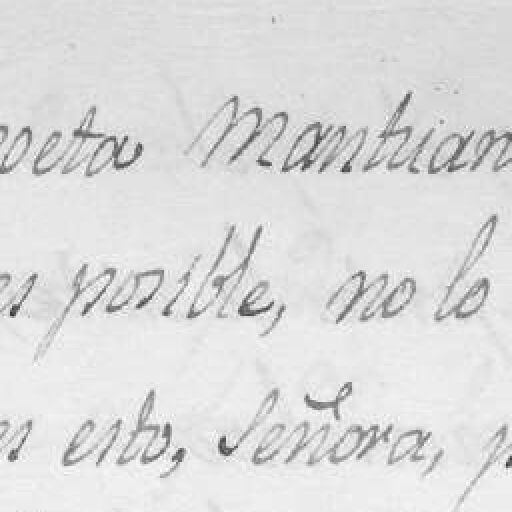 poeta Mantuan
es posible, no lo
es esto, Señora, p